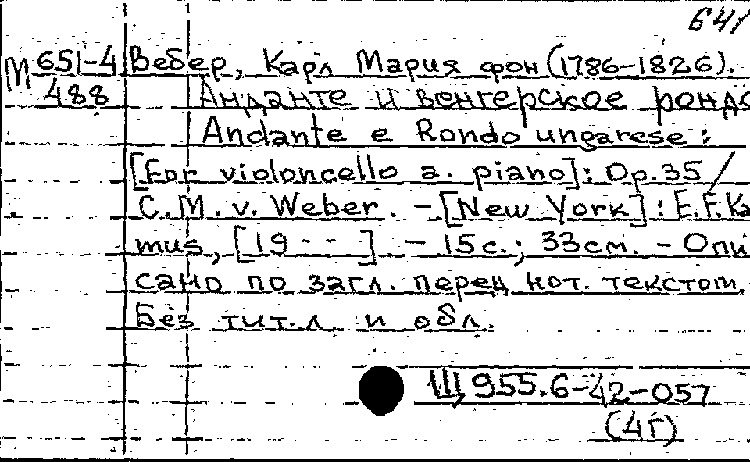 641
М 651-4 Вебер, Карл Мария фон (1786-1826).
488 Анданте и венгерское рондо
Andante e Rondo ungarese:
[For violoncello a. piano]: Op.35 /
C.M.v. Weber. - [New York] : E.F.Ka
mus, [19 - - ] - 15 с.; 33 см. - Опи
сано по загл. перед нот. текстом.
Без тит.л и обл.
Щ 955.6-42-057
(4Г)